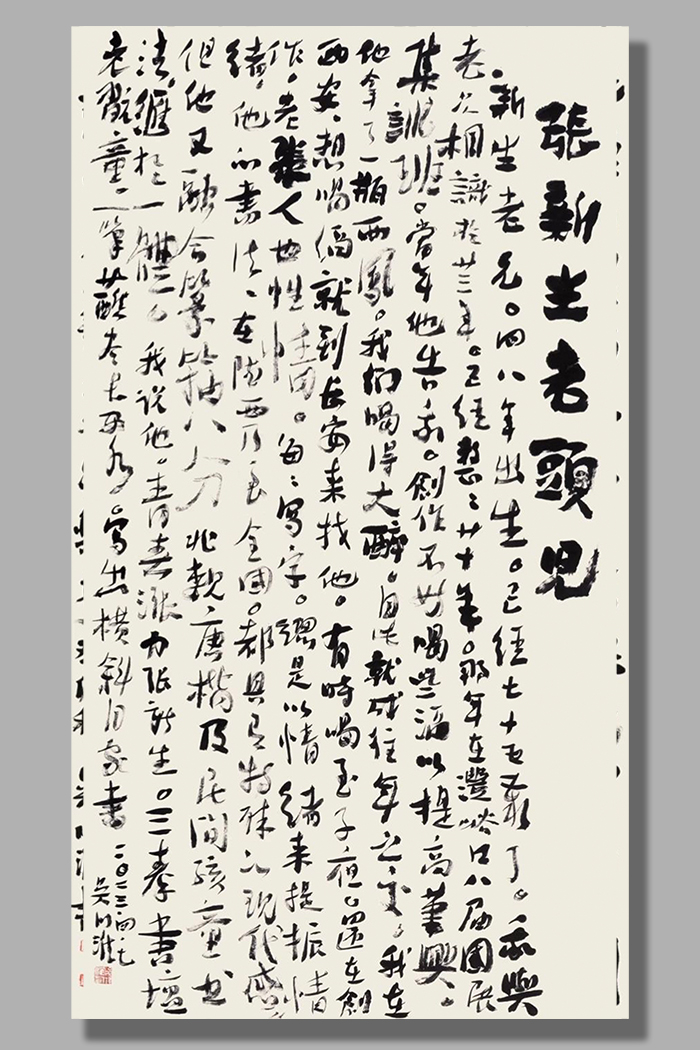 張新生老頭兒
新生老兄。四八年出生。已經七十五歲了。我與
老兄相識於廿三年。已經整整廿十年。那年在灃峪口八屆國展
集訓班。當年他告我。創作不妨喝些酒以提高筆興。
他拿了一瓶西鳳。我們喝得大醉。自此就成往年之交。我在
西安。想喝酒就到長安來找他。有時喝至子夜。還在創
作。老張人也性情。每每寫字。總是以情緒來提振情
緒。他的書法、在陝西乃至全國。都具有特殊的現代感
但他又融合篆籀八分北親唐楷及民間孩童書
法。匯於一體 我說他。青春 力張新生。三秦書壇
老頑童 一筆蘸 寫出橫斜自家書 二〇二三四七 吳川淮